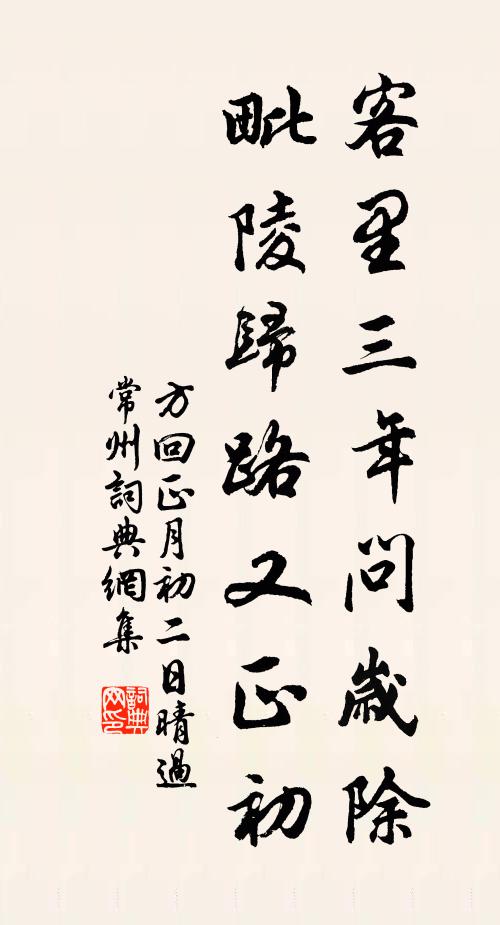 客里三年問歲除
毗陵歸路又正初
方回正月初二日晴過
常州詞典網集
詞典
网印